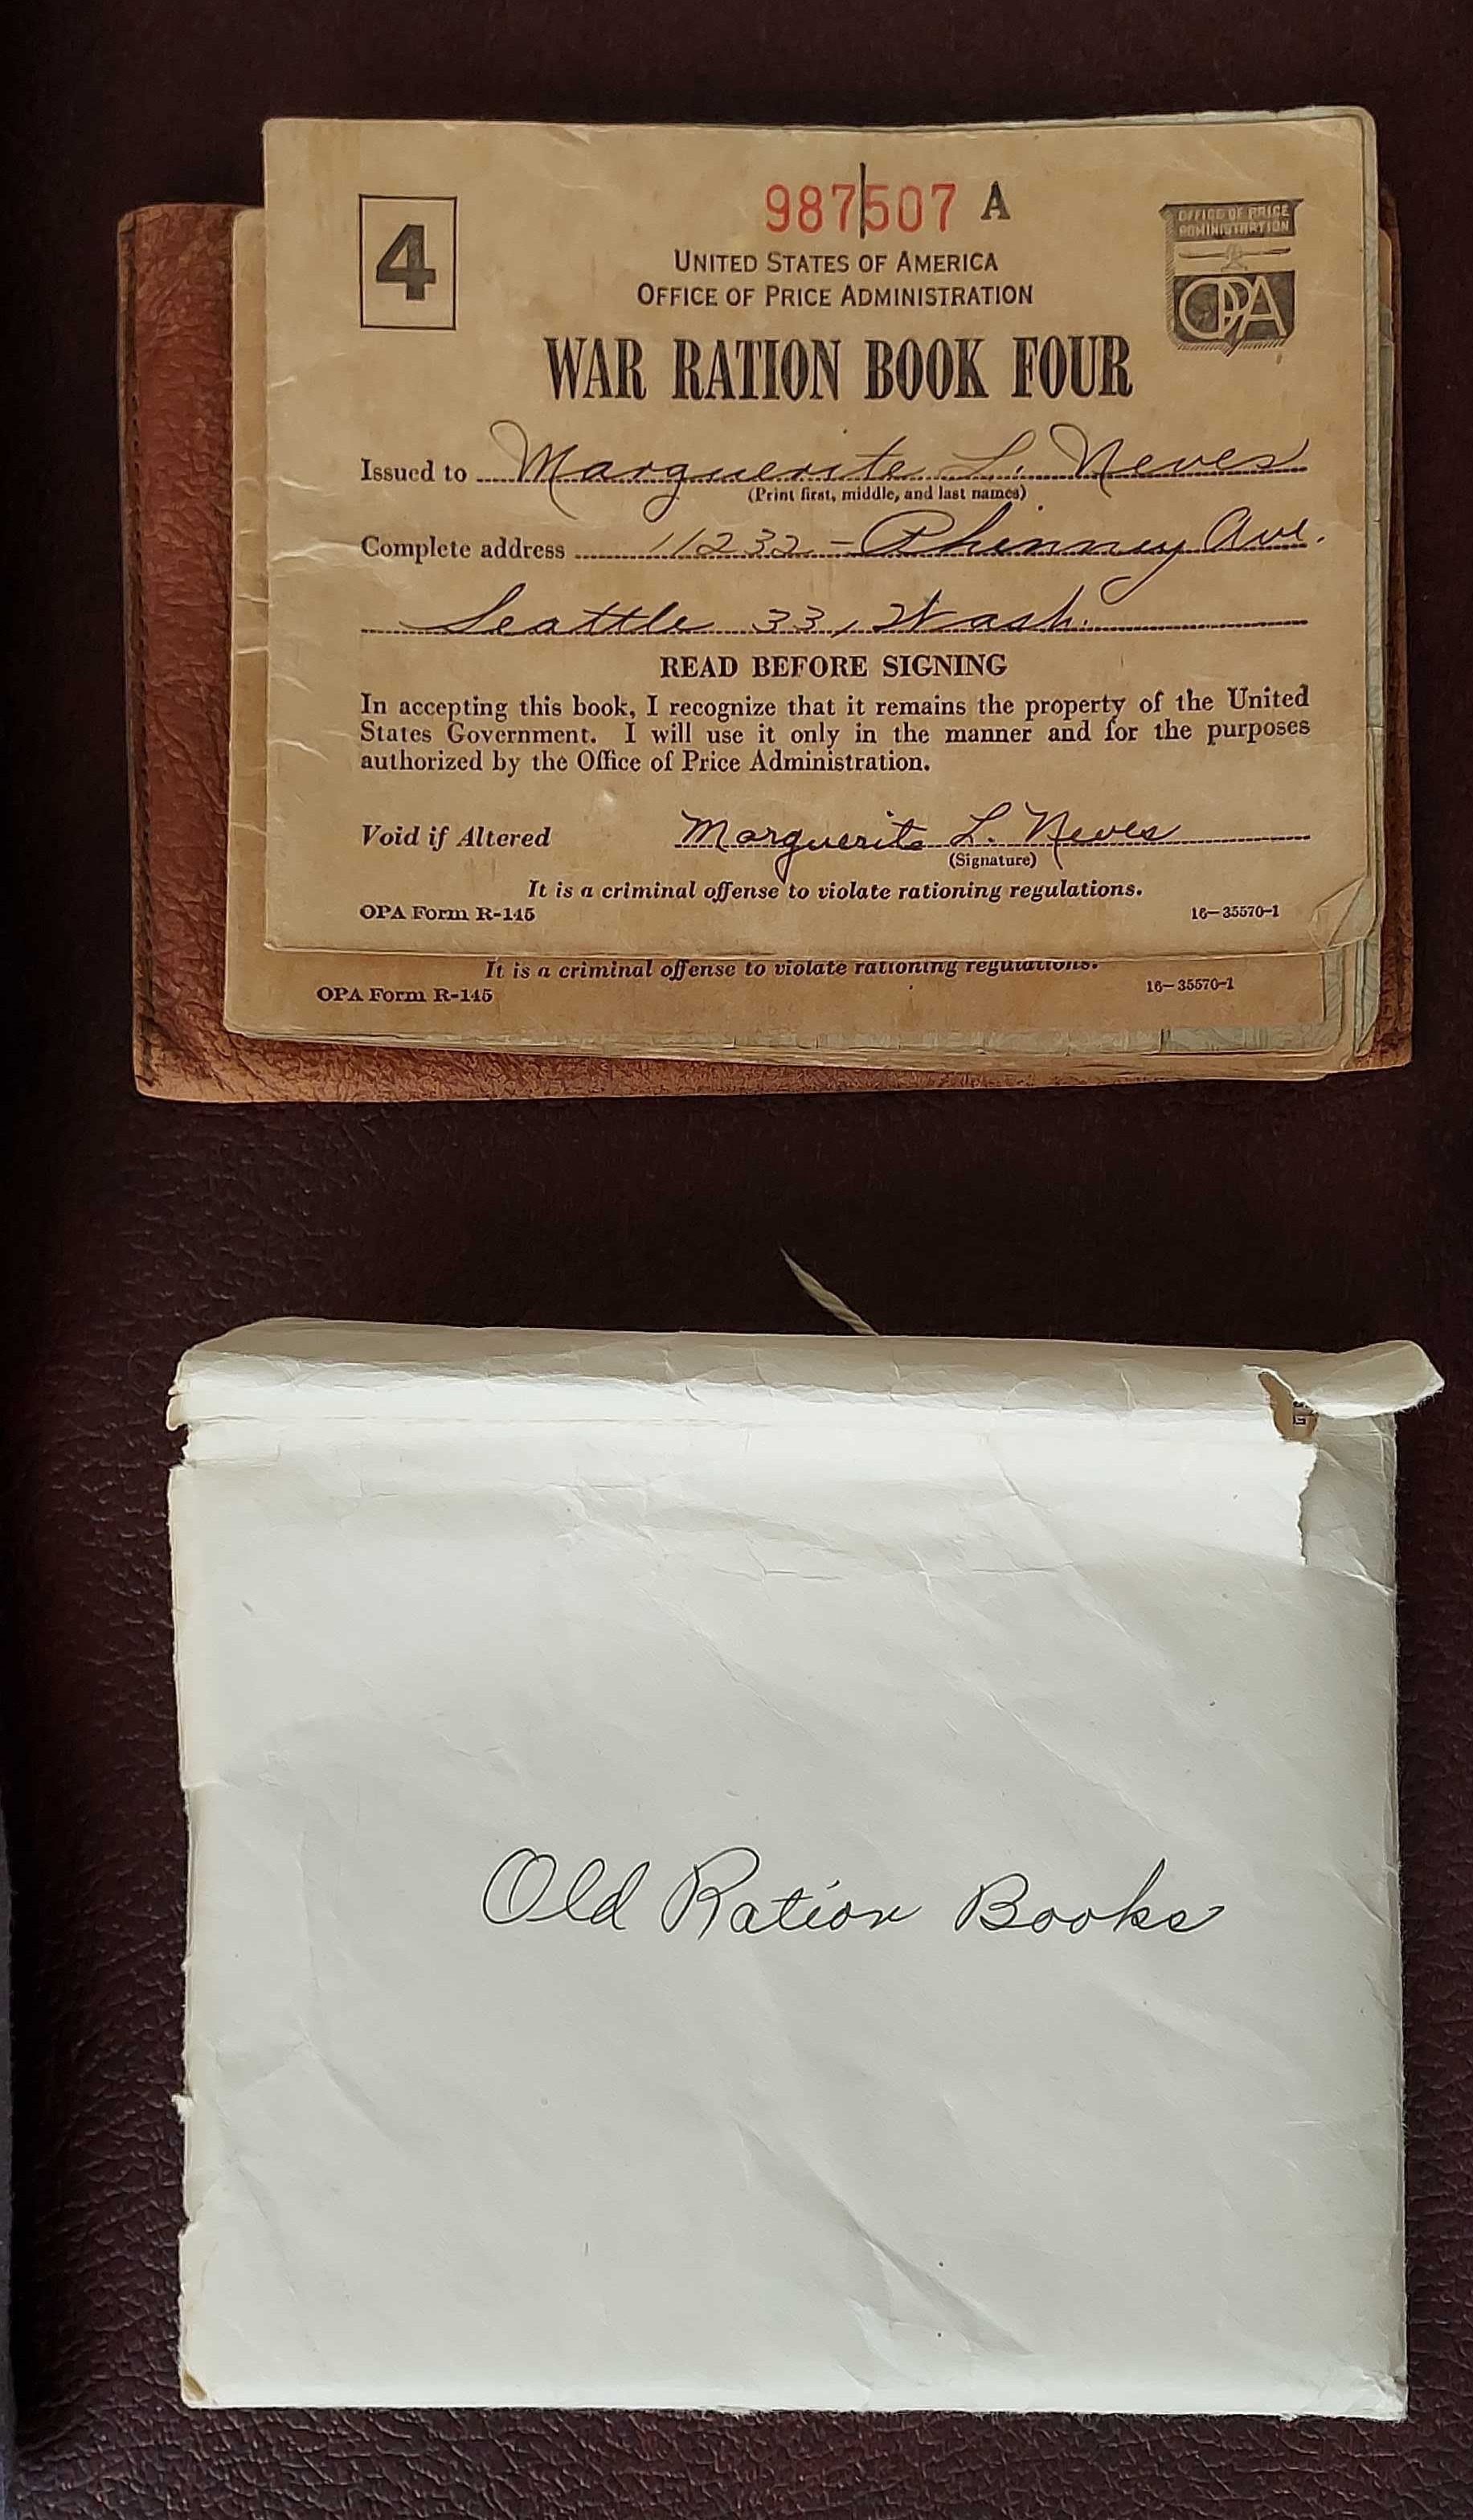 987507 A
4
OFFICE OF PRICE
ADMINISTRATION
OPA
UNITED STATES OF AMERICA
OFFICE OF PRICE ADMINISTRATION
WAR RATION BOOK FOUR
Issued to Marguerite L. Neves
(Print first, middle, and last names)
Complete address 11232 - Phinney Ave.
Seattle 33, Wash.
READ BEFORE SIGNING
In accepting this book, I recognize that it remains the property of the United
States Government. I will use it only in the manner and for the purposes
authorized by the Office of Price Administration.
Void if Altered Marguerite L. Neves
(Signature)
It is a criminal offense to violate rationing regulations.
OPA Form R-145 16-35570-1
It is a criminal offense to violate rationing regulations.
OPA Form R-145 16-35570-1
Old Ration Books